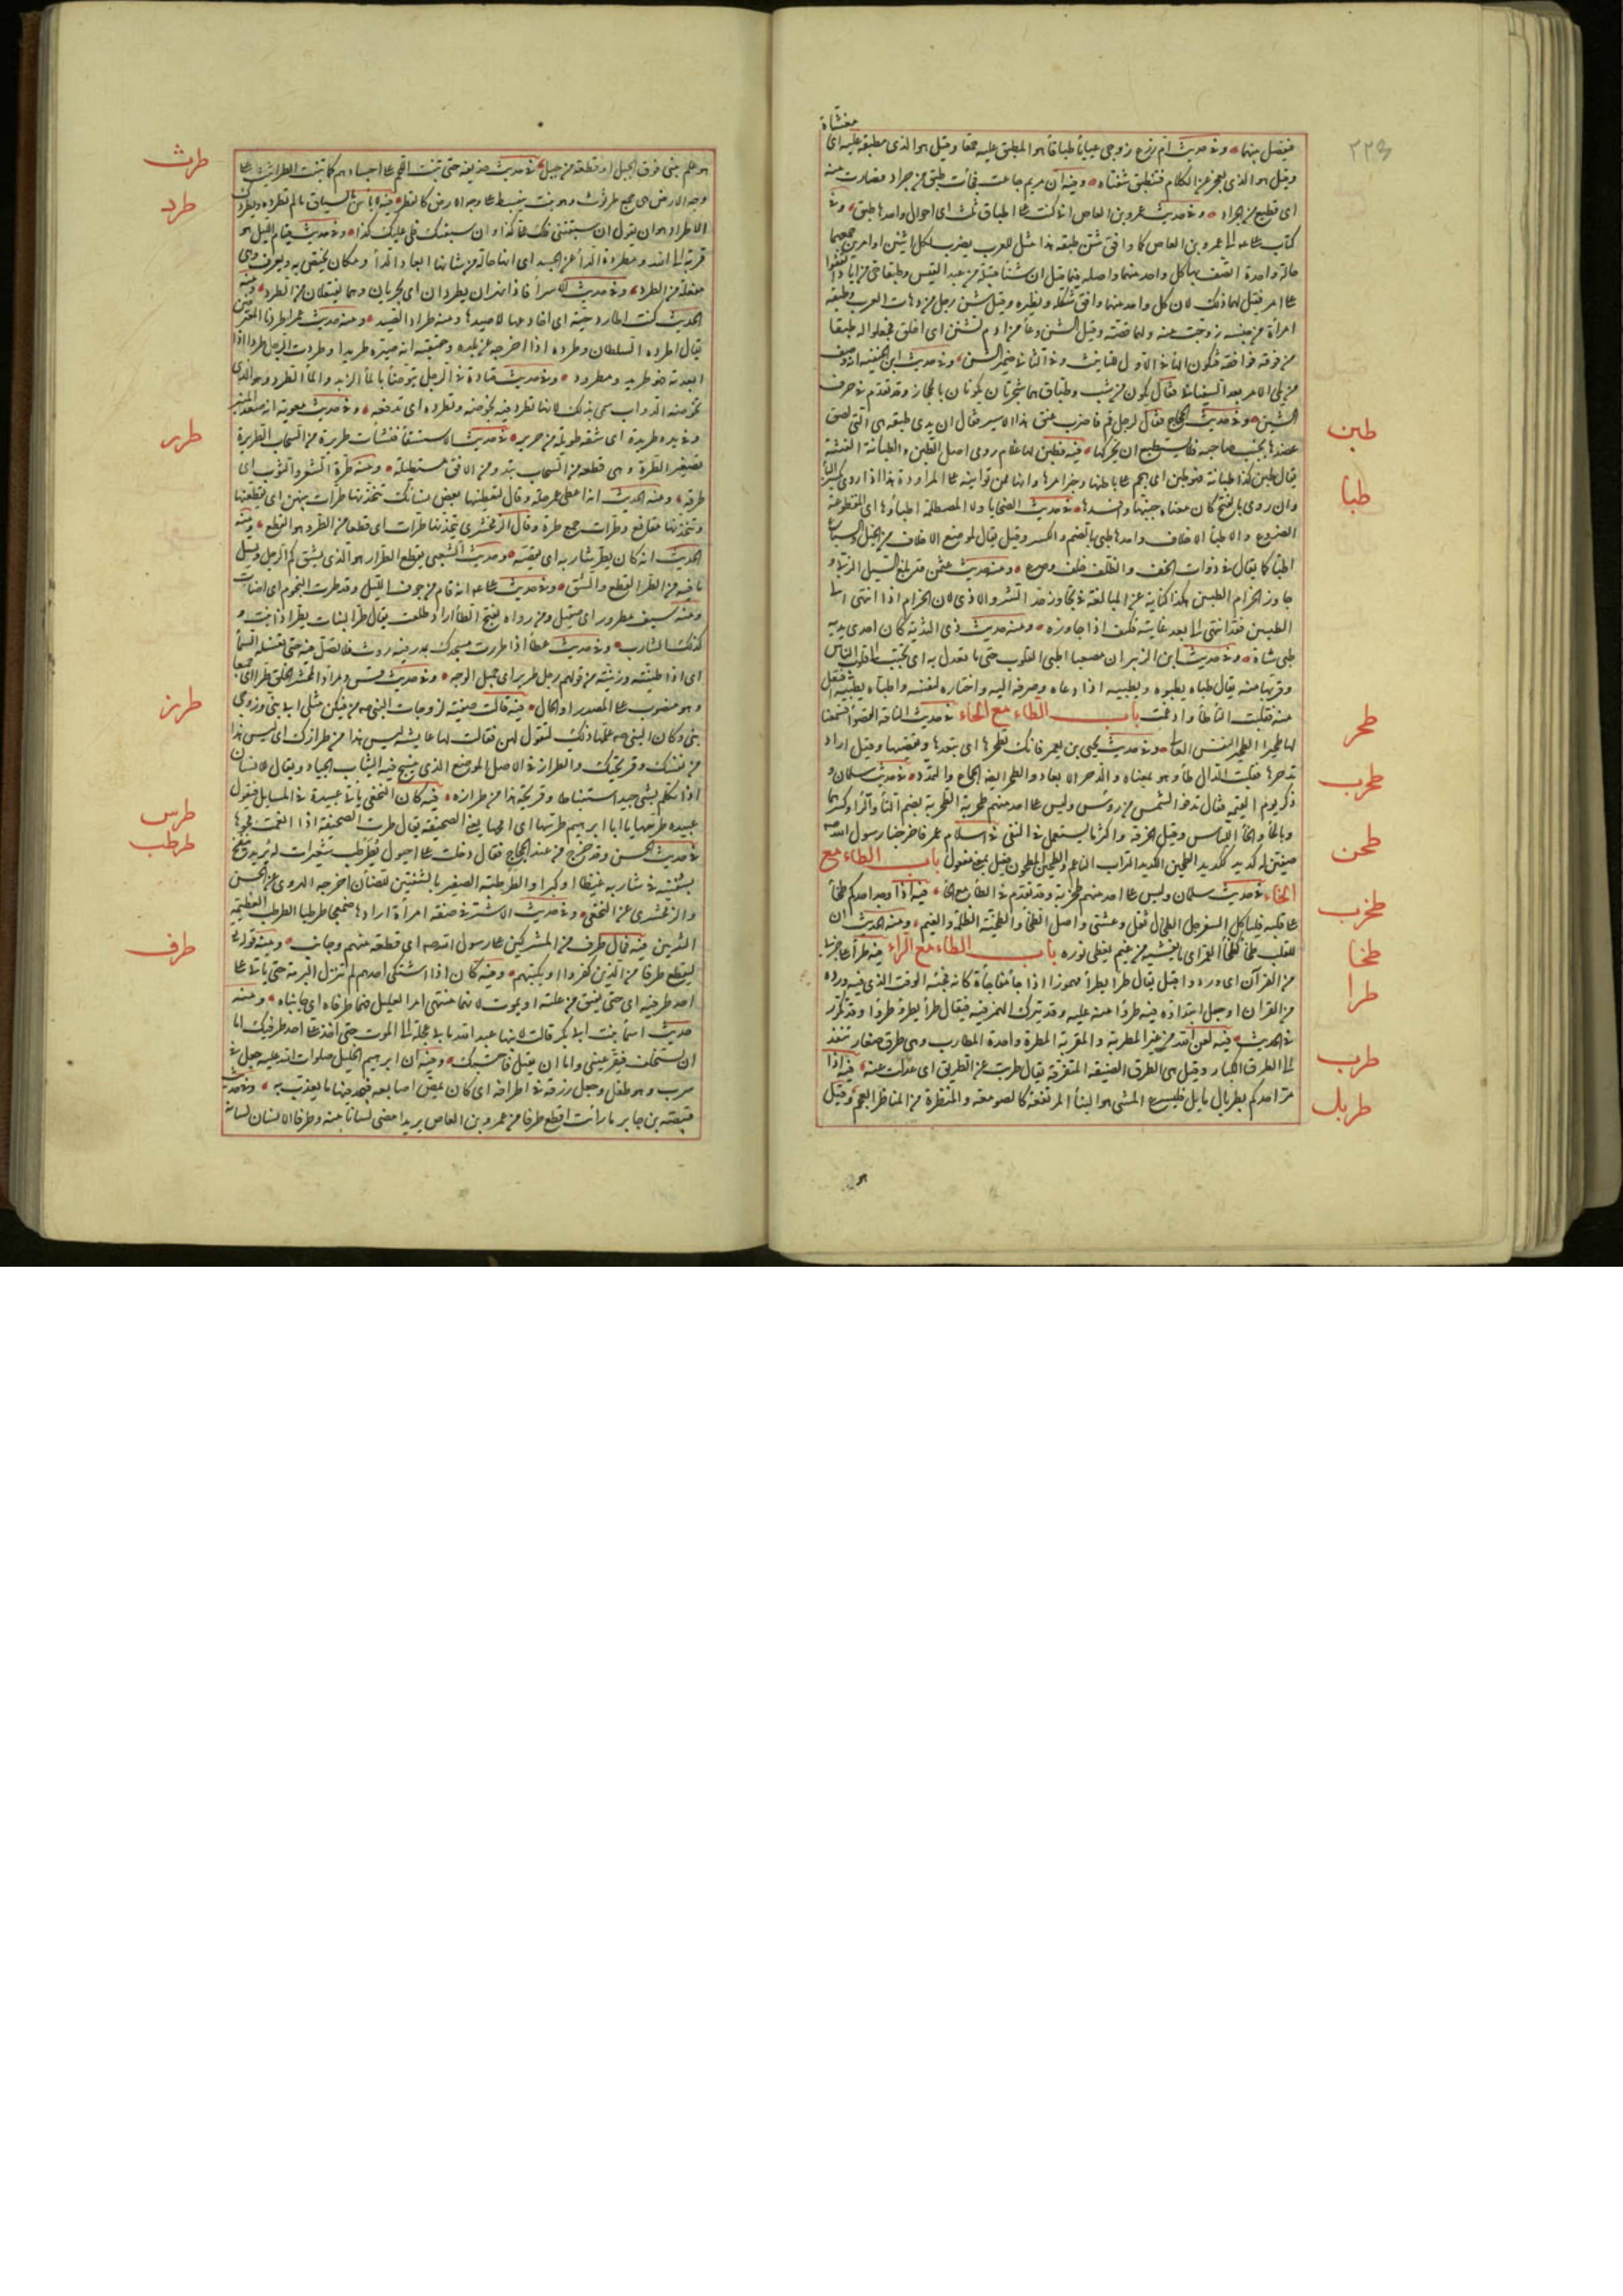 مغشاة
٢٢٤
فيفصل بينهما وفي حديث ام زرع زوجي عياياء طباقاء هو المطبق عليه حمقا وقيل هو الذي مطبقة عليه اي
وقيل هو الذي يعجز عن الكلام فتنطبق شفتاه وفيه ان مريم جاعت فجاءت طبق من جراد فصادت منه
اي قطيع من الجراد وفي حديث عمرو بن العاص اني كنت على اطباق ثلث اي احوال واحدها طبق وفي
كتاب علي الى عمرو بن العاص كما وافق شن طبقه هذا مثل للعرب يضرب لكل اثنين او امرين جمعتهما
حالة واحدة اتصف بها كل واحد منهما واصله فيما قيل ان شنا قبيلة من عبد القيس وطبقا حي من اياد اتفقوا
على امر فقيل لهما ذلك لان كل واحد منهما وافق شكله ونظيره وقيل شن رجل من دهاة العرب وطبقة
امرأة من جنسه زوجت منه ولها قصة وقيل الشن وعاء من ادم تشنن اي اخلق فجعلوا له طبقا
من فوقه فوافقه فتكون الهاء في الاول للتانيث وفي الثاني ضمير الشن وفي حديث ابن الحنفية انه وصف
من يلي الامر بعد السفياني فقال يكون من شث وطباق هما شجرتان يكونان بالحجاز وقد تقدم في حرف
الشين وفي حديث الحجاج فقال لرجل قم فاضرب عنق هذا الاسير فقال ان يدي طبقة هي التي لصق
عضدها بجنب صاحبه فلا يستطيع ان يحركها فيه فطبن لها غلام رومي اصل الطبن والطبانة الفطنة
يقال طبن لكذا طبانة فهو طبن اي هجم على باطنها وخبر امرها وانها ممن تواتيه على المراودة هذا اذا روي بكسر الباء
وان روي بالفتح كان معناه خببها وافسدها في حديث الضحايا ولا المصطلمة اطباؤها اي المقطوعة
الضروع والاطباء الاخلاف واحدها طبي بالضم والكسر وقيل يقال لموضع الاخلاف من الخيل والسباع
اطباء كما يقال في ذوات الخف والظلف خلف وضرع ومنه حديث عثمن قد بلغ السيل الزبى و
جاوز الحزام الطبيين هذا كناية عن المبالغة في تجاوز حد الشر والاذى لان الحزام اذا انتهى الى
الطبيين فقد انتهى الى ابعد غاياته فكيف اذا جاوزه ومنه حديث ذي الثدية كان احدى يديه
طبي شاة وفي حديث ابن الزبير ان مصعبا اطبى القلوب حتى ما تعدل به اي تحبب الى قلوب الناس
وقربها منه يقال طباه يطبوه ويطبيه اذا دعاه وصرفه اليه واختاره لنفسه واطباه يطبيه افتعل
منه فقلبت التاء طاء وادغمت باب الطاء مع الحاء في حديث الناقة القصواء فسمعنا
لها طحيرا الطحير النفس العالي وفي حديث يحيى بن يعمر فانك تطحرها اي تبعدها وتقصيها وقيل اراد
تدحرها فقلب الدال طاء وهو بمعناه والدحر الابعاد والطحر ايضا الجماع والتمدد في حديث سلمان و
ذكر يوم القيمة فقال تدنو الشمس من رؤس وليس على احد منهم طحربة الطحربة بضم الطاء والراء وكسرهما
وبالحاء والخاء اللباس وقيل الخرقة واكثر ما يستعمل في النفي في اسلام عمر فاخرجنا رسول الله
صفين له كديد ككديد الطحين الكديد التراب الناعم والطحين المطحون فعيل بمعنى مفعول باب الطاء مع
الخاء في حديث سلمان وليس على احد منهم طخربة وقد تقدم في الطاء مع الحاء فيه اذا وجد احدكم طخاء
على قلبه فلياكل السفرجل الطخاء ثقل وغشي واصل الطخاء والطخية الظلمة والغيم ومنه الحديث ان
للقلب طخاة كطخاة القمر اي ما يغشيه من غيم يغطي نوره باب الطاء مع الراء فيه طرأ علي حزبي
من القرآن اي ورد واقبل يقال طرأ يطرأ مهموزا اذا جاء مفاجأة كانه فجئه الوقت الذي فيه ورده
من القرآن او جعل ابتداءه فيه طروءا منه عليه وقد يترك الهمز فيه فيقال طرا يطرو طروا وقد تكرر
في الحديث فيه لعن الله من غير المطربة والمقربة المطربة واحدة المطارب وهي طرق صغار تنفذ
الى الطرق الكبار وقيل هي الطرق الضيقة المتفرقة يقال طربت عن الطريق اي عدلت عنه فيه اذا
مر احدكم بطربال مائل فليسرع المشي هو البناء المرتفع كالصومعة والمنظرة من مناظر العجم وقيل
هو
طبن
طبا
طحر
طحرب
طحن
طخرب
طخا
طرا
طرب
طربل
هو علم يبنى فوق الجبل او قطعة من جبل في حديث حذيفة حتى تنبت اللحم على اجسادهم كما تنبت الطراثيث على
وجه الارض هي جمع طرثوث وهو نبت ينبسط على وجه الارض كالفطر فيه لا باس بالسباق ما لم تطرده ويطردك
الاطراد هو ان تقول ان سبقتني فلك علي كذا وان سبقتك فلي عليك كذا وفي حديث قيام الليل هو
قربة الى الله ومطردة الداء عن الجسد اي انها حالة من شانها ابعاد الداء او مكان يختص به ويعرف وهي
مفعلة من الطرد وفي حديث الاسراء فاذا نهران يطردان اي يجريان وهما يفتعلان من الطرد ومنه
الحديث كنت اطارد حية اي اخادعها لاصيدها ومنه طراد الصيد ومنه حديث عمر اطردنا المعترفين
يقال اطرده السلطان وطرده اذا اخرجه عن بلده وحقيقته انه صيره طريدا وطردت الرجل طردا اذا
ابعدته فهو طريد ومطرود وفي حديث قتادة في الرجل يتوضأ بالماء الرمد والماء الطرد هو الذي
تخوضه الدواب سمي بذلك لانها تطرد فيه بخوضه وتطرده اي تدفعه وفي حديث معوية انه صعد المنبر
وفي يده طريدة اي شقة طويلة من حرير في حديث الاستسقاء فنشأت طريرة من السحاب الطريرة
تصغير الطرة وهي قطعة من السحاب تبدو من الافق مستطيلة ومنه طرة الشعر والثوب اي
طرفه ومنه الحديث انه اعطى عمر حلة وقال لتعطينها بعض نسائك تتخذنها طرات بينهن اي يقطعنها
ويتخذنها مقانع وطرات جمع طرة وقال الزمخشري يتخذنها طرات اي قطعا من الطر وهو القطع ومنه
الحديث انه كان يطر شاربه اي يقصه وحديث الشعبي يقطع الطرار هو الذي يشق كم الرجل ويسل
ما فيه من الطر القطع والشق وفي حديث علي انه قام من جوف الليل وقد طرت النجوم اي اضاءت
ومنه سيف مطرور اي صقيل ومن رواه بفتح الطاء اراد طلعت يقال طر النبات يطر اذا نبت و
كذلك الشارب وفي حديث عطاء اذا طررت مسجدك بمدر فيه روث فلا تصل فيه حتى تغسله السماء
اي اذا طينته وزينته من قولهم رجل طرير اي جميل الوجه وفي حديث قس ومرادا لمحشر الخلق طرا اي جميعا
وهو منصوب على المصدر او الحال فيه قالت صفية لزوجات النبي من فيكن مثلي ابي نبي وزوجي
نبي وكان النبي علمها ذلك لتقول لهن فقالت لها عايشة ليس هذا من طرازك اي ليس هذا
من نفسك وقريحتك والطراز في الاصل الموضع الذي ينسج فيه الثياب الجياد ويقال للانسان
اذا تكلم بشيء جيد استنباطا وقريحة هذا من طرازه فيه كان النخعي ياتي عبيدة في المسايل فيقول
عبيدة طرسها يا ابا ابرهيم طرسها اي امحها يعني الصحيفة يقال طرست الصحيفة اذا انعمت محوها
في حديث الحسن وقد خرج من عند الحجاج فقال دخلت على احيول يطرطب شعيرات له يريد ينفخ
بشفتيه في شاربه غيظا او كبرا والطرطبة الصفير بالشفتين للضأن اخرجه الهروي عن الحسن
والزمخشري عن النخعي وفي حديث الاشتر في صفة امرأة ارادها ضمعجا طرطبا الطرطب العظيمة
الثديين فيه فمال طرف من المشركين على رسول الله صم اي قطعة منهم وجانب ومنه قوله تعالى
ليقطع طرفا من الذين كفروا او يكبتهم وفيه كان اذا اشتكى احدهم لم تنزل البرمة حتى ياتي على
احد طرفيه اي حتى يفيق من علته او يموت لانهما منتهى امر العليل فهما طرفاه اي جانباه ومنه
حديث اسماء بنت ابي بكر قالت لابنها عبد الله ما بي عجلة الى الموت حتى اخذ على احد طرفيك اما
ان تستخلف فتقر عيني واما ان تقتل فاحتسبك وفيه ان ابرهيم الخليل صلوات الله عليه جعل في
سرب وهو طفل وجعل رزقه في اطرافه اي كان يمص اصابعه فيجد فيها ما يغذيه وفي حديث
قبيصة بن جابر ما رأيت اقطع طرفا من عمرو بن العاص يريد امضى لسانا منه وطرفا الانسان لسانه
طرث
طرد
طرر
طرز
طرس
طرطب
طرف